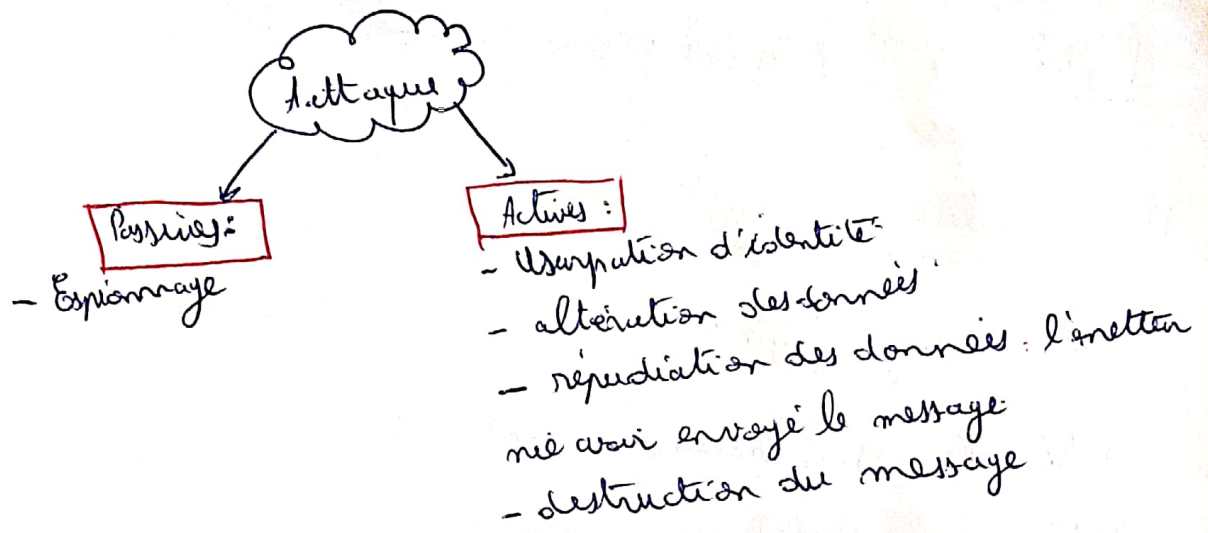 Attaque
Passives :
- Espionnage
Actives :
- Usurpation d'identité
- altération des données
- répudiation des données : l'émetteur
nie avoir envoyé le message
- destruction du message